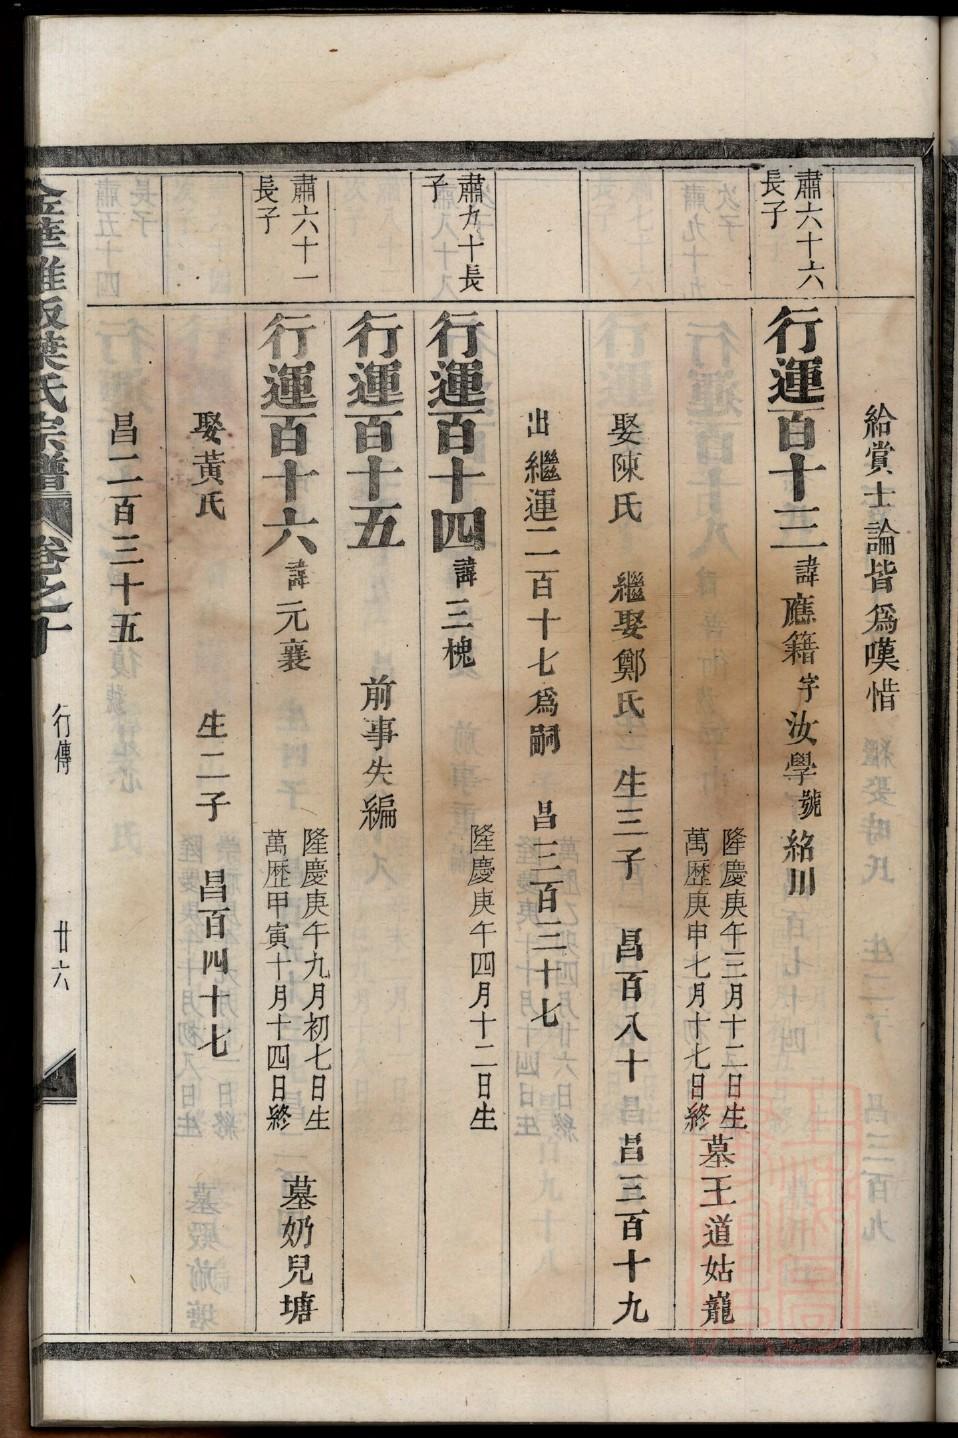 給賞士論皆爲嘆惜
肅六十六
長子
行運百十三諱應籍字汝學號絡川
隆慶庚午三月十二日生
萬歷庚申七月十七日終
墓王道姑巃
娶陳氏 繼娶鄭氏 生三子 昌百八十 昌 昌三百十九
出繼運二百十七爲嗣 昌二百三十七
肅九十長
子
行運百十四諱三槐
隆慶庚午四月十二日生
行運百十五 前事失編
肅六十一
長子
行運百十六諱元襄
隆慶庚午九月初七日生
萬歷甲寅十月十四日終
墓奶兒塘
娶黃氏 生二子 昌百四十七
昌二百三十五
金華雅畈葉氏宗譜 卷之十 行傳 廿六